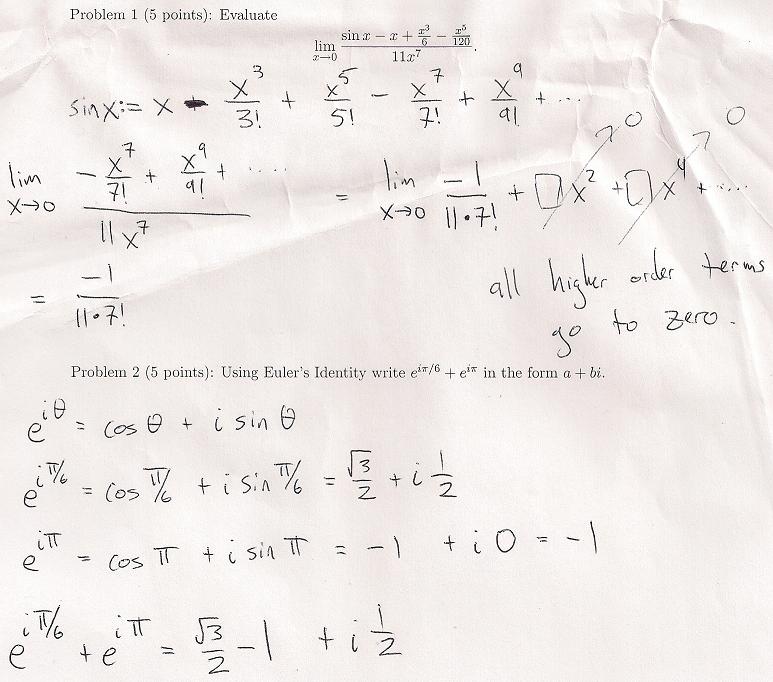 Problem 1 (5 points): Evaluate
lim x→0 (sin x − x + x³/6 − x⁵/120) / 11x⁷.
sinx := x - x³/3! + x⁵/5! − x⁷/7! + x⁹/9! + ...
lim x→0 (−x⁷/7! + x⁹/9! + ....) / 11x⁷ = lim x→0 −1/(11•7!) + □x² →0 + □x⁴ →0 + .....
= −1/(11•7!)
all higher order terms
go to zero.
Problem 2 (5 points): Using Euler's Identity write e^{iπ/6} + e^{iπ} in the form a + bi.
e^{iθ} = cos θ + i sin θ
e^{iπ/6} = cos π/6 + i sin π/6 = √3/2 + i 1/2
e^{iπ} = cos π + i sin π = −1 + i 0 = −1
e^{iπ/6} + e^{iπ} = √3/2 − 1 + i 1/2